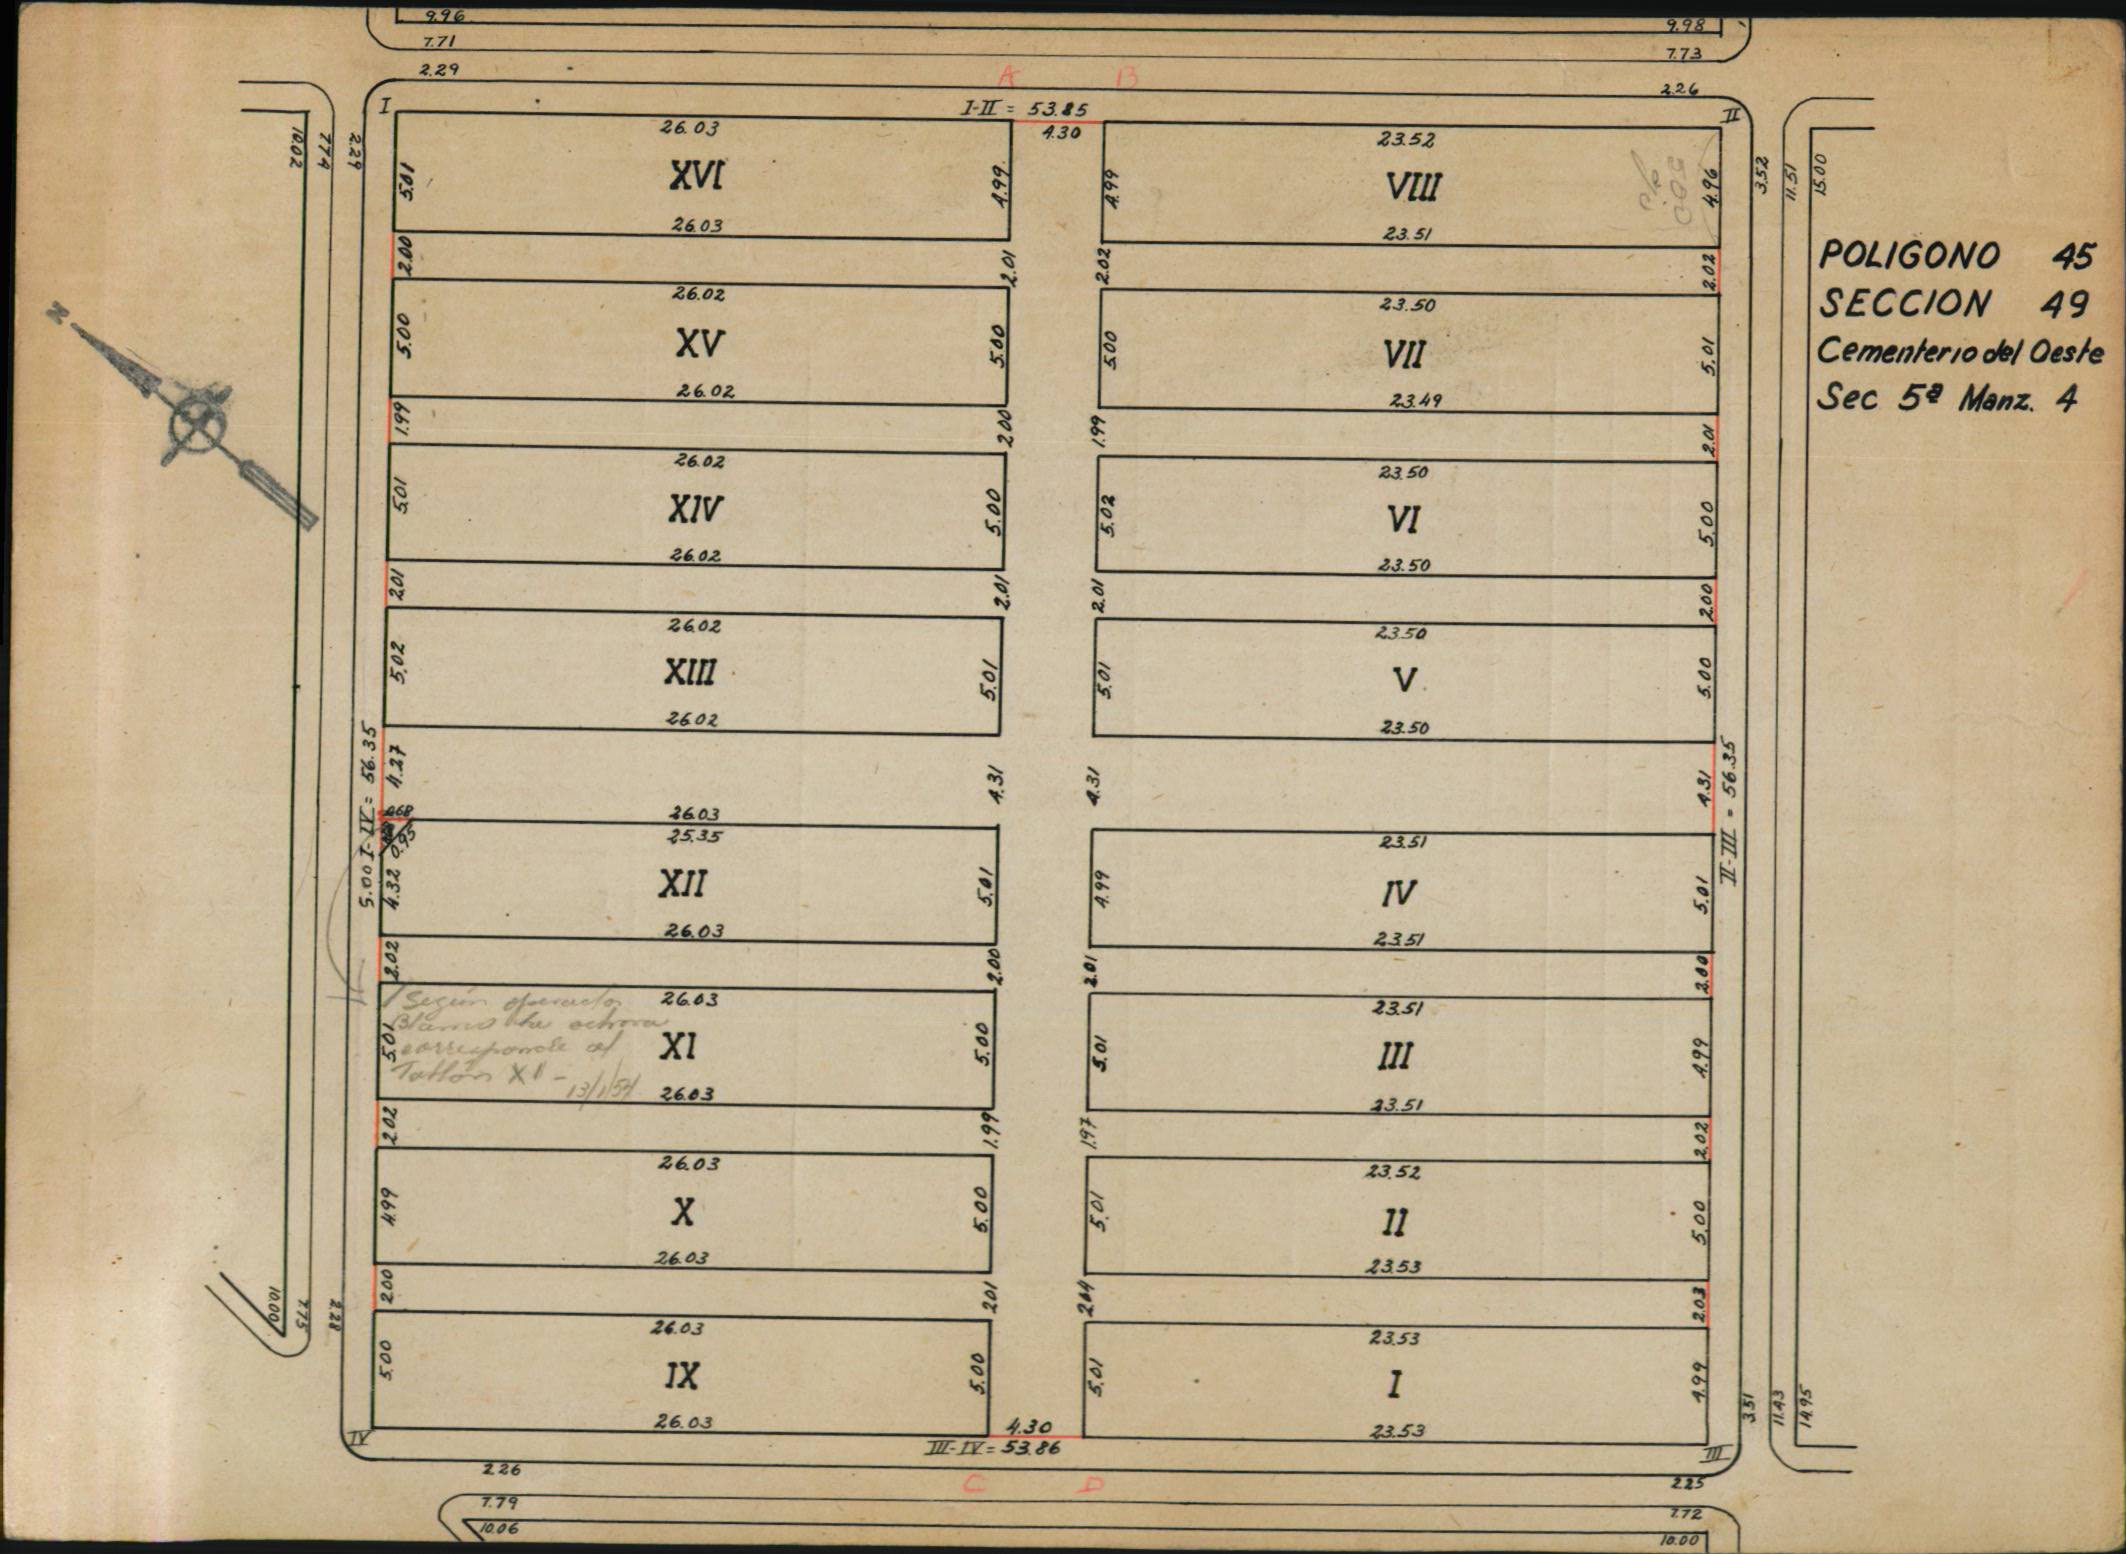 9.96
9.98
7.71
7.73
2.29
A B
2.26
I
I-II = 53.85
II
4.30
10.02
7.74
2.29
3.52
11.51
15.00
26.03
5.01
XVI
4.99
26.03
23.52
4.99
VIII
4.96
23.51
5.00
2.00
2.01
2.02
2.02
POLIGONO 45
SECCION 49
Cementerio del Oeste
Sec 5ª Manz. 4
N
26.02
5.00
XV
5.00
26.02
23.50
5.00
VII
5.01
23.49
1.99
2.00
1.99
2.01
26.02
5.01
XIV
5.00
26.02
23.50
5.02
VI
5.00
23.50
2.01
2.01
2.01
2.00
26.02
5.02
XIII
5.01
26.02
23.50
5.01
V
5.00
23.50
I-IV = 56.35
4.27
4.31
4.31
4.31
II-III = 56.35
0.68
26.03
0.95
25.35
5.00
4.32
XII
5.01
26.03
23.51
4.99
IV
5.01
23.51
2.02
2.00
2.01
2.00
26.03
Según
la ochava
corresponde al
Tablón XII -
13/1/54
5.01
XI
5.00
26.03
23.51
5.01
III
4.99
23.51
2.02
1.99
1.97
2.02
26.03
4.99
X
5.00
26.03
23.52
5.01
II
5.00
23.53
2.00
2.01
2.04
2.03
10.00
7.75
2.28
26.03
5.00
IX
5.00
26.03
23.53
5.01
I
4.99
23.53
3.51
11.43
14.95
IV
4.30
III-IV = 53.86
III
2.26
C D
2.25
7.79
7.72
10.06
10.00